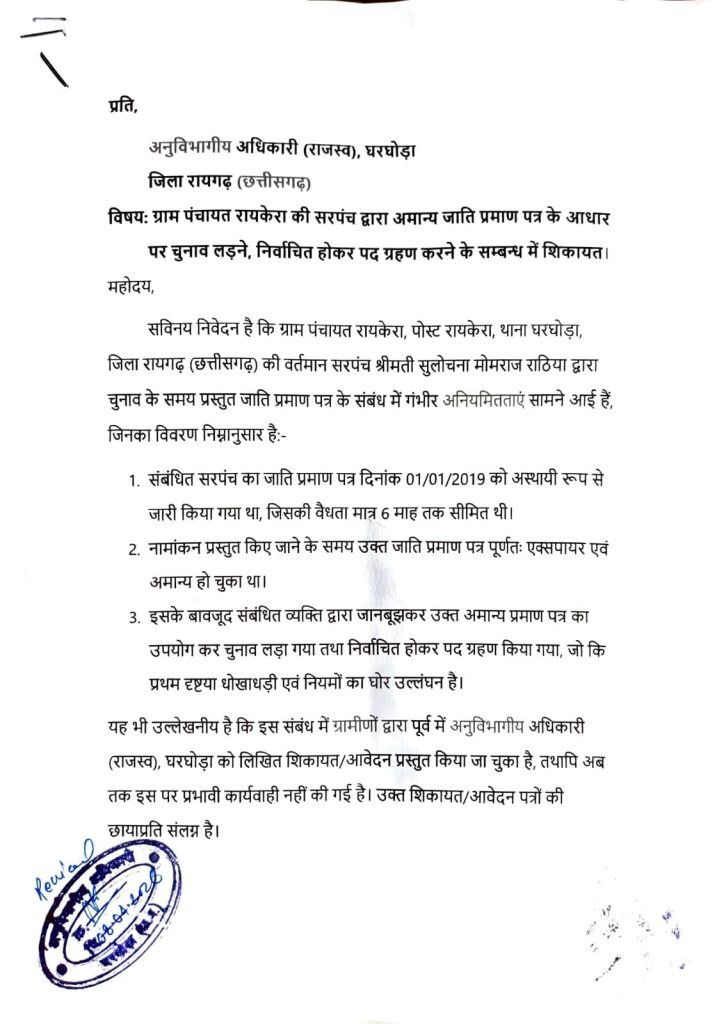 प्रति,
अनुविभागीय अधिकारी (राजस्व), घरघोड़ा
जिला रायगढ़ (छत्तीसगढ़)
विषय: ग्राम पंचायत रायकेरा की सरपंच द्वारा अमान्य जाति प्रमाण पत्र के आधार
पर चुनाव लड़ने, निर्वाचित होकर पद ग्रहण करने के सम्बन्ध में शिकायत।
महोदय,
सविनय निवेदन है कि ग्राम पंचायत रायकेरा, पोस्ट रायकेरा, थाना घरघोड़ा,
जिला रायगढ़ (छत्तीसगढ़) की वर्तमान सरपंच श्रीमती सुलोचना मोमराज राठिया द्वारा
चुनाव के समय प्रस्तुत जाति प्रमाण पत्र के संबंध में गंभीर अनियमितताएं सामने आई हैं,
जिनका विवरण निम्नानुसार है:-
1. संबंधित सरपंच का जाति प्रमाण पत्र दिनांक 01/01/2019 को अस्थायी रूप से
जारी किया गया था, जिसकी वैधता मात्र 6 माह तक सीमित थी।
2. नामांकन प्रस्तुत किए जाने के समय उक्त जाति प्रमाण पत्र पूर्णतः एक्सपायर एवं
अमान्य हो चुका था।
3. इसके बावजूद संबंधित व्यक्ति द्वारा जानबूझकर उक्त अमान्य प्रमाण पत्र का
उपयोग कर चुनाव लड़ा गया तथा निर्वाचित होकर पद ग्रहण किया गया, जो कि
प्रथम दृष्टया धोखाधड़ी एवं नियमों का घोर उल्लंघन है।
यह भी उल्लेखनीय है कि इस संबंध में ग्रामीणों द्वारा पूर्व में अनुविभागीय अधिकारी
(राजस्व), घरघोड़ा को लिखित शिकायत/आवेदन प्रस्तुत किया जा चुका है, तथापि अब
तक इस पर प्रभावी कार्यवाही नहीं की गई है। उक्त शिकायत/आवेदन पत्रों की
छायाप्रति संलग्न है।
अनुविभागीय अधिकारी
घरघोड़ा